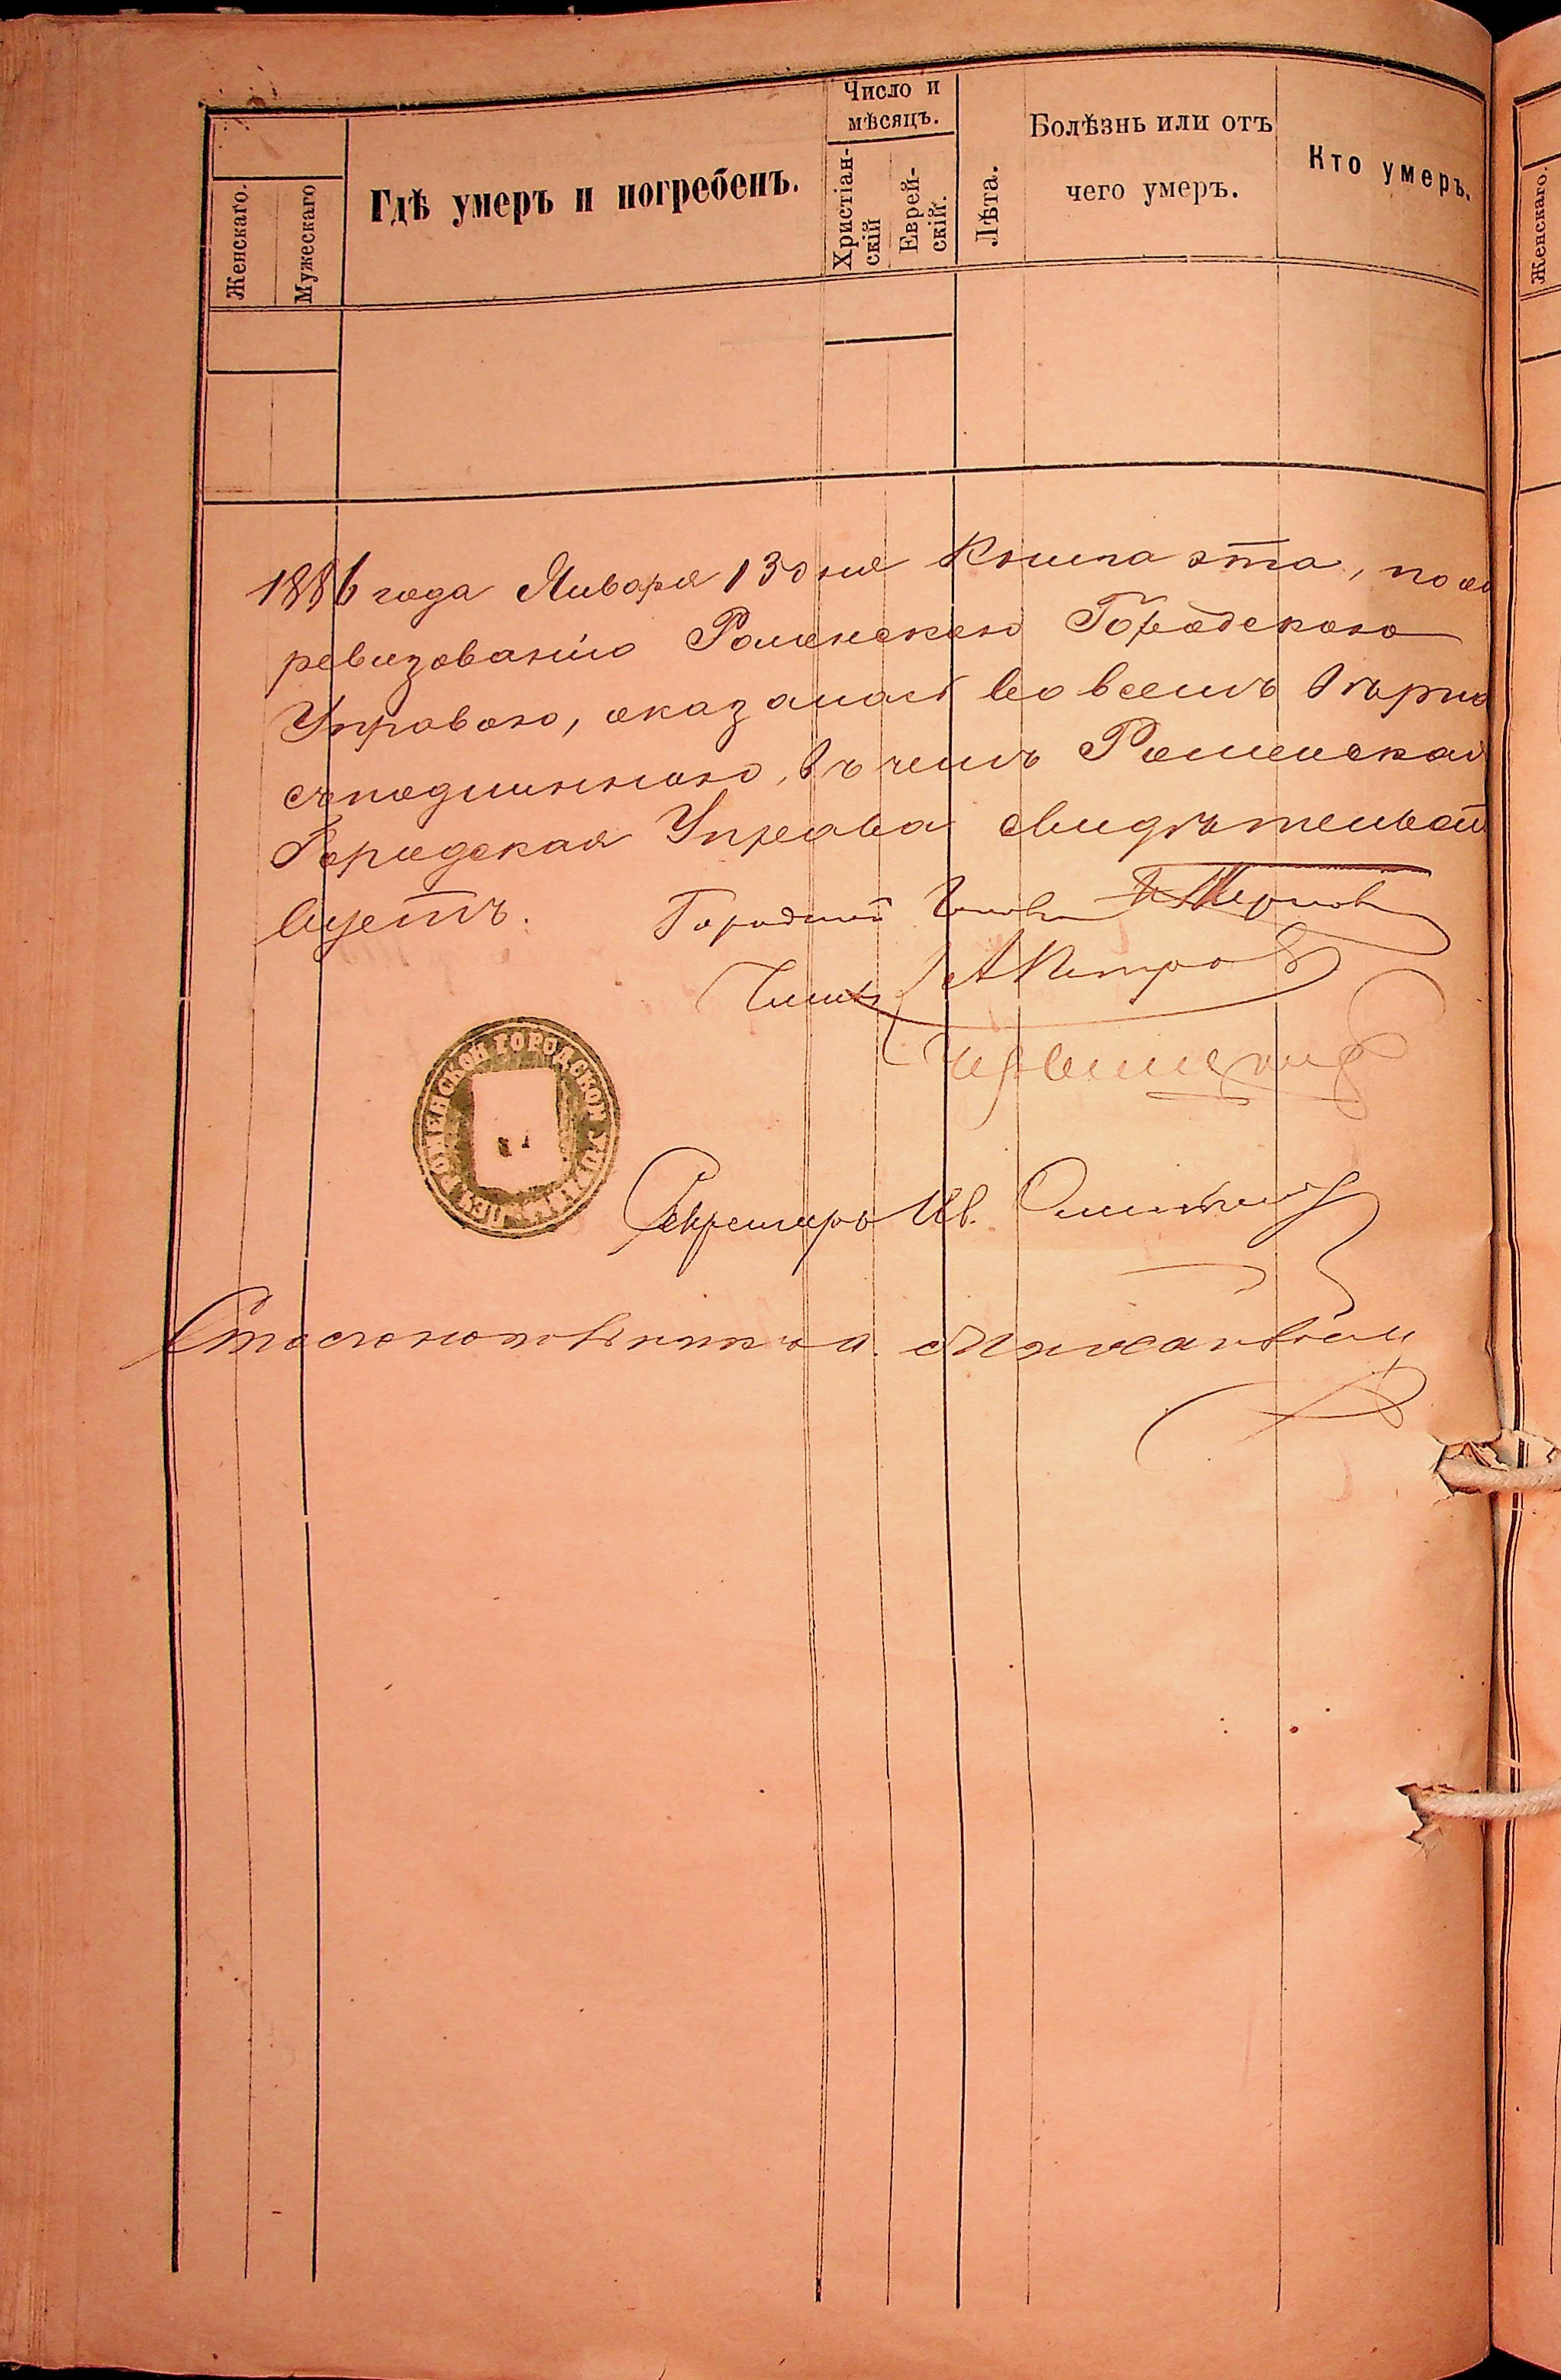 Женскаго.
Мужескаго
Гдѣ умеръ и погребенъ.
Число и
мѣсяцъ.
Христіан-
скій
Еврей-
скій.
Лѣта.
Болѣзнь или отъ
чего умеръ.
Кто умеръ.
Женскаго.
1886 года Января 13 дня Книга эта, по
ревизованіи Роменскою Городскою
Управою, оказалась во всемъ вѣрно
съ подлинною, въ чемъ Роменская
Городская Управа свидѣтельст
вуетъ.
Городской Голова
Члены А Петров
РОМЕНСКОЙ ГОРОДСКОЙ УПРАВЫ
Секретарь Ив.